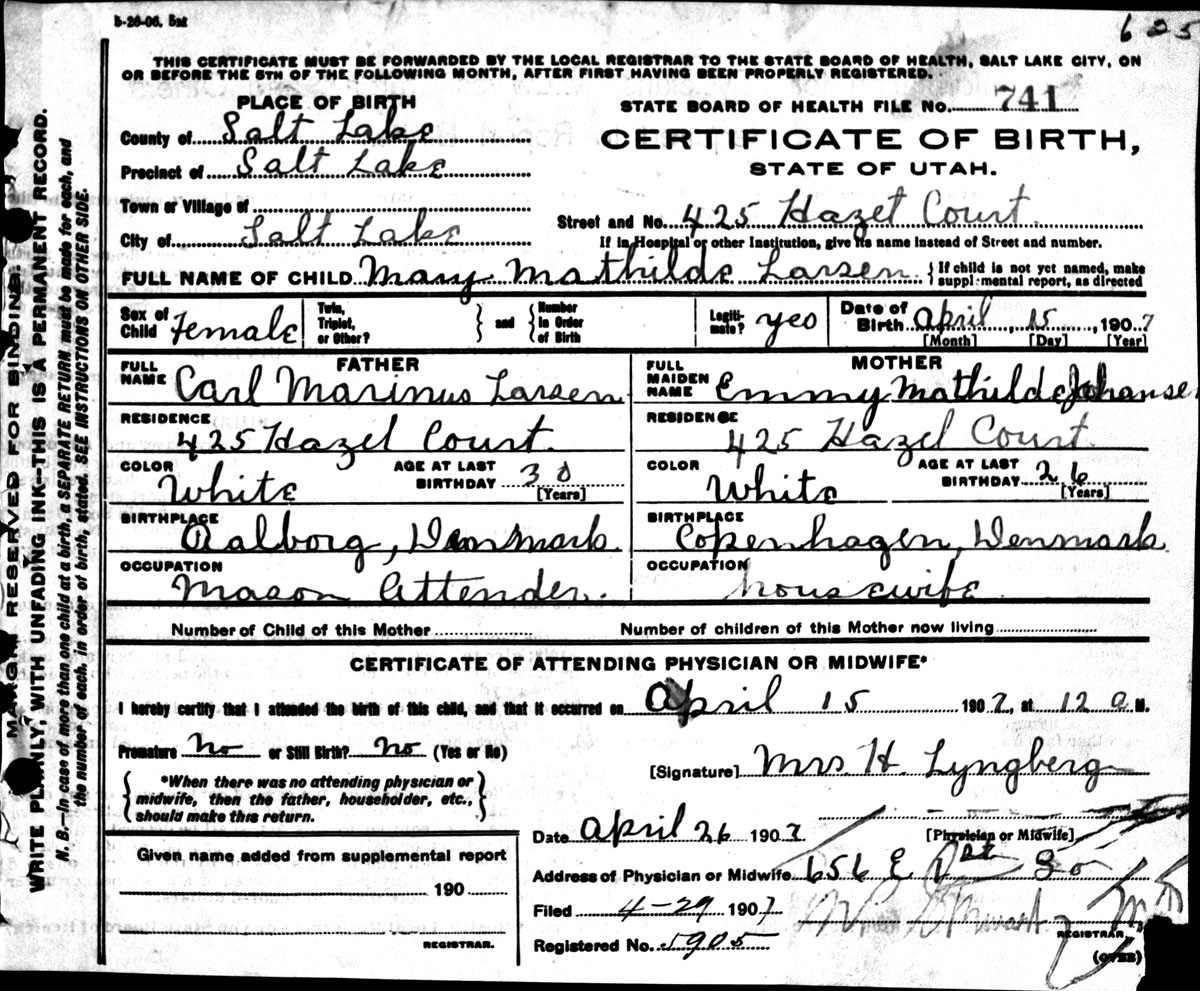 5-26-06. 5M
625
THIS CERTIFICATE MUST BE FORWARDED BY THE LOCAL REGISTRAR TO THE STATE BOARD OF HEALTH, SALT LAKE CITY, ON
OR BEFORE THE 5TH OF THE FOLLOWING MONTH, AFTER FIRST HAVING BEEN PROPERLY REGISTERED.
PLACE OF BIRTH
County of Salt Lake
Precinct of Salt Lake
Town or Village of
City of Salt Lake
STATE BOARD OF HEALTH FILE NO. 741
CERTIFICATE OF BIRTH,
STATE OF UTAH.
Street and No. 425 Hazel Court
If in Hospital or other Institution, give its name instead of Street and number.
FULL NAME OF CHILD Mary Mathilde Larsen { If child is not yet named, make
supplemental report, as directed
Sex of Child Female
Twin, Triplet, or Other? } and { Number in Order of Birth
Legitimate? yes
Date of Birth April 15, 1907
[Month] [Day] [Year]
FATHER
FULL NAME Carl Marinus Larsen
RESIDENCE 425 Hazel Court.
COLOR White AGE AT LAST BIRTHDAY 30 [Years]
BIRTHPLACE Aalborg, Denmark
OCCUPATION Mason Attender.
MOTHER
FULL MAIDEN NAME Emmy Mathilde Johansen
RESIDENCE 425 Hazel Court
COLOR White AGE AT LAST BIRTHDAY 26 [Years]
BIRTHPLACE Copenhagen, Denmark
OCCUPATION housewife
Number of Child of this Mother Number of children of this Mother now living
CERTIFICATE OF ATTENDING PHYSICIAN OR MIDWIFE*
I hereby certify that I attended the birth of this child, and that it occurred on April 15 1907, at 12 a M.
Premature No or Still Birth? No (Yes or No)
{ *When there was no attending physician or
midwife, then the father, householder, etc.,
should make this return. }
[Signature] Mrs. H. Lyngberg
[Physician or Midwife]
Date April 26 1907
Address of Physician or Midwife 656 E 1st So
Filed 4-29 1907
Registered No. 1905
REGISTRAR
(OVER)
Given name added from supplemental report
190
REGISTRAR.
MARGIN RESERVED FOR BINDING.
WRITE PLAINLY, WITH UNFADING INK—THIS IS A PERMANENT RECORD.
N. B.—In case of more than one child at a birth, a SEPARATE RETURN must be made for each, and
the number of each, in order of birth, stated. SEE INSTRUCTIONS ON OTHER SIDE.